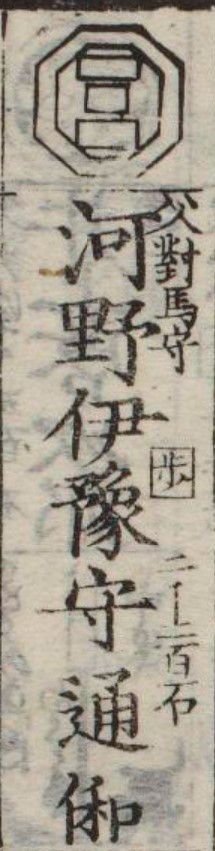 父對馬守
河野伊豫守通俰
歩
二千二百石